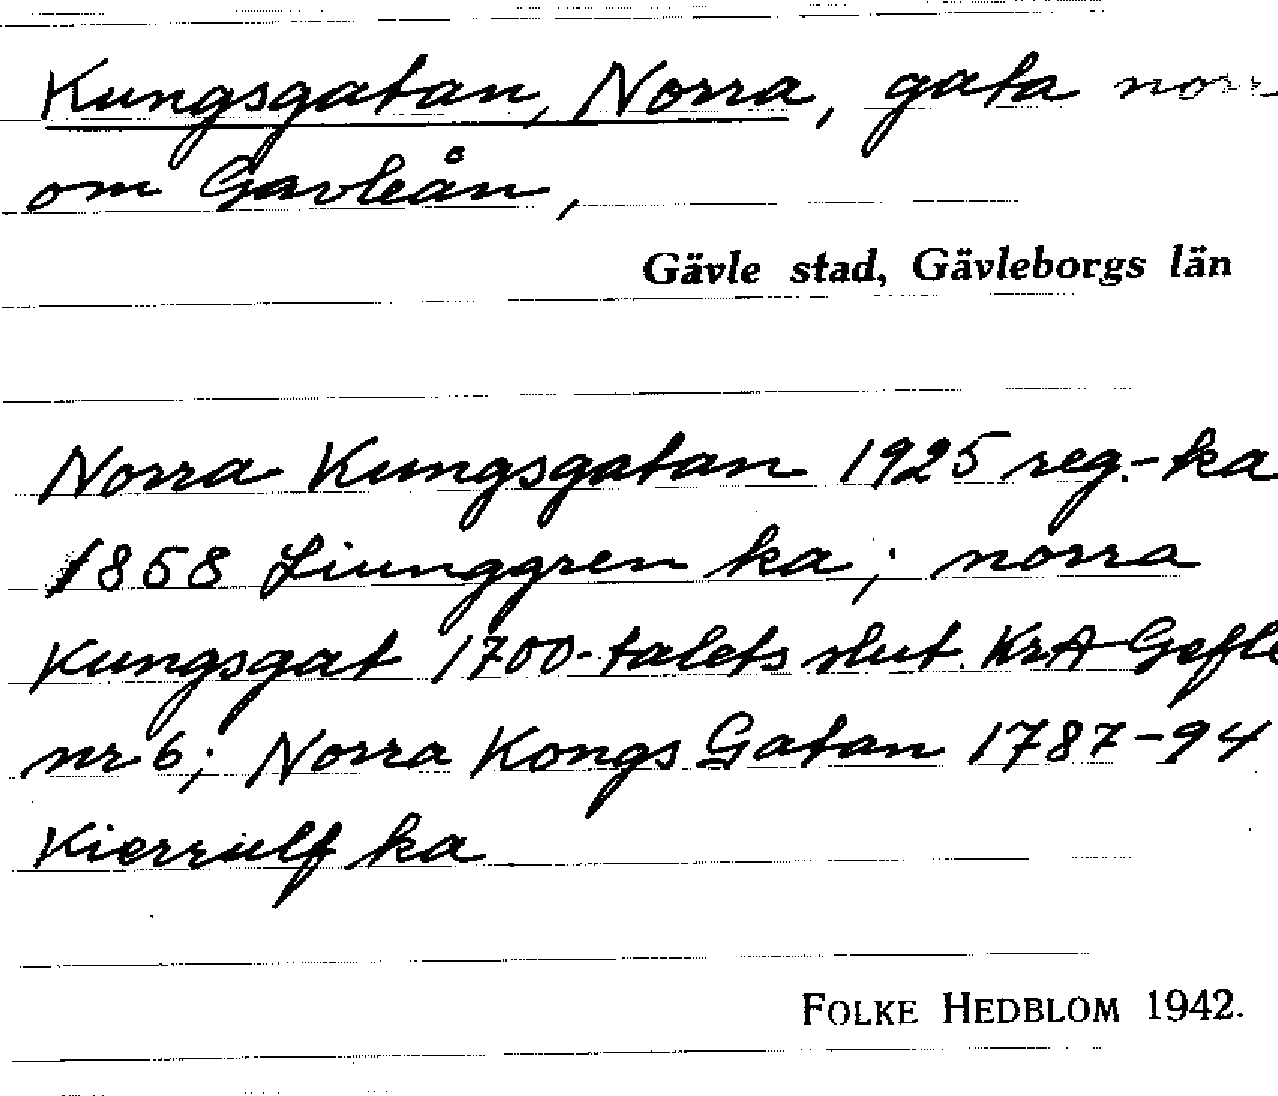 Kungsgatan, Norra, gata norr
om Gavleån,
Gävle stad, Gävleborgs län
Norra Kungsgatan 1925 reg.-ka
1858 Ljunggren ka; norra
Kungsgat 1700-talets slut KrA Gefle
nr 6; Norra Kongs Gatan 1787-94
Kierrulf ka
FOLKE HEDBLOM 1942.